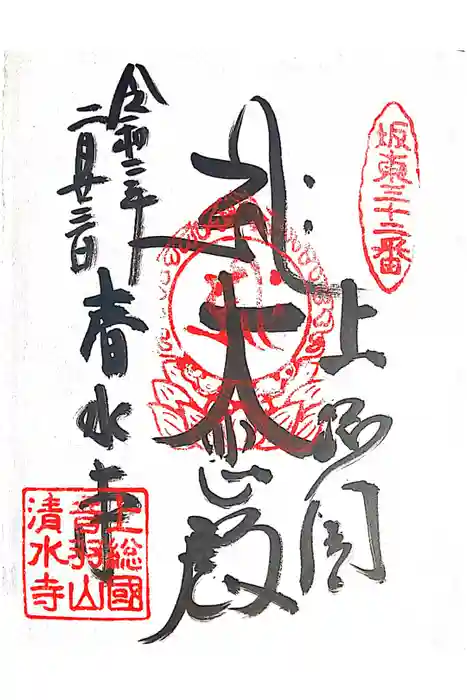 坂東三十二番
上総国
大悲殿
令和二年
二月廿三日
清水寺
上総國
音羽山
清水寺